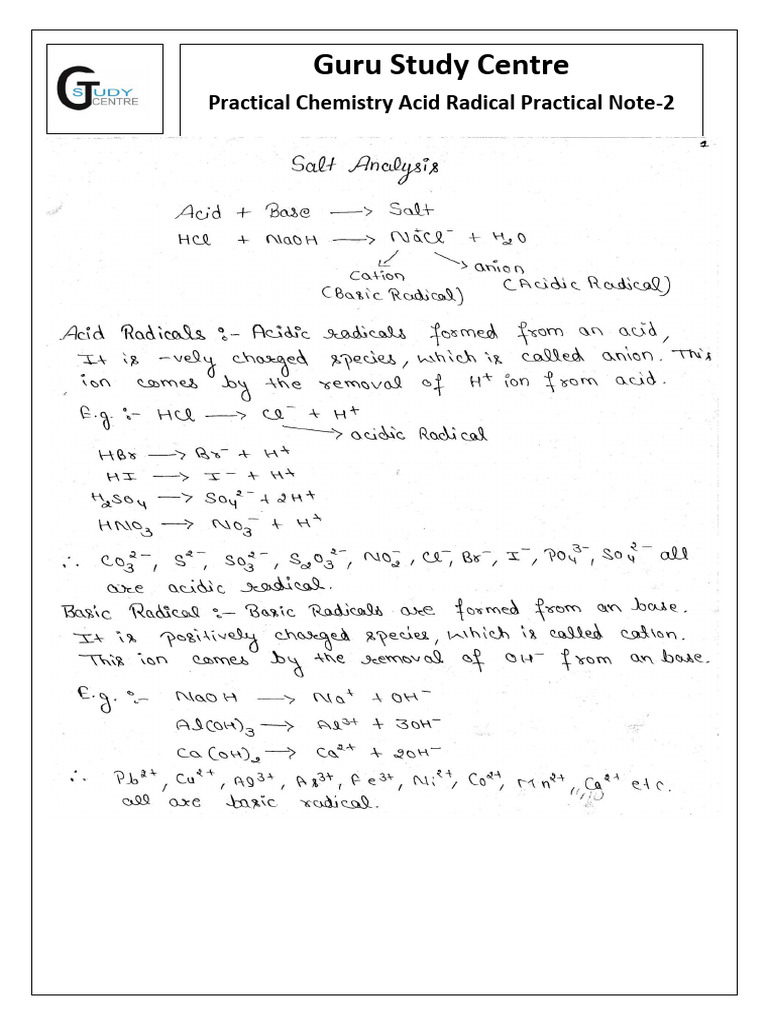 GT STUDY CENTRE
Guru Study Centre
Practical Chemistry Acid Radical Practical Note-2
1
Salt Analysis
Acid + Base ⟶ Salt
HCl + NaOH ⟶ Na⁺Cl⁻ + H₂O
cation anion
(Basic Radical) (Acidic Radical)
Acid Radicals :- Acidic radicals formed from an acid,
It is -vely charged species, which is called anion. This
ion comes by the removal of H⁺ ion from acid.
E.g. :- HCl ⟶ Cl⁻ + H⁺
⟶ acidic Radical
HBr ⟶ Br⁻ + H⁺
HI ⟶ I⁻ + H⁺
H₂SO₄ ⟶ SO₄²⁻ + 2H⁺
HNO₃ ⟶ NO₃⁻ + H⁺
∴ CO₃²⁻, S²⁻, SO₃²⁻, S₂O₃²⁻, NO₂⁻, Cl⁻, Br⁻, I⁻, PO₄³⁻, SO₄²⁻ all
are acidic radical.
Basic Radical :- Basic Radicals are formed from an base.
It is positively charged species, which is called cation.
This ion comes by the removal of OH⁻ from an base.
E.g. :- NaOH ⟶ Na⁺ + OH⁻
Al(OH)₃ ⟶ Al³⁺ + 3OH⁻
Ca(OH)₂ ⟶ Ca²⁺ + 2OH⁻
∴ Pb²⁺, Cu²⁺, Al³⁺, As³⁺, Fe³⁺, Ni²⁺, Co²⁺, Mn²⁺, Ca²⁺ etc.
all are basic radical.